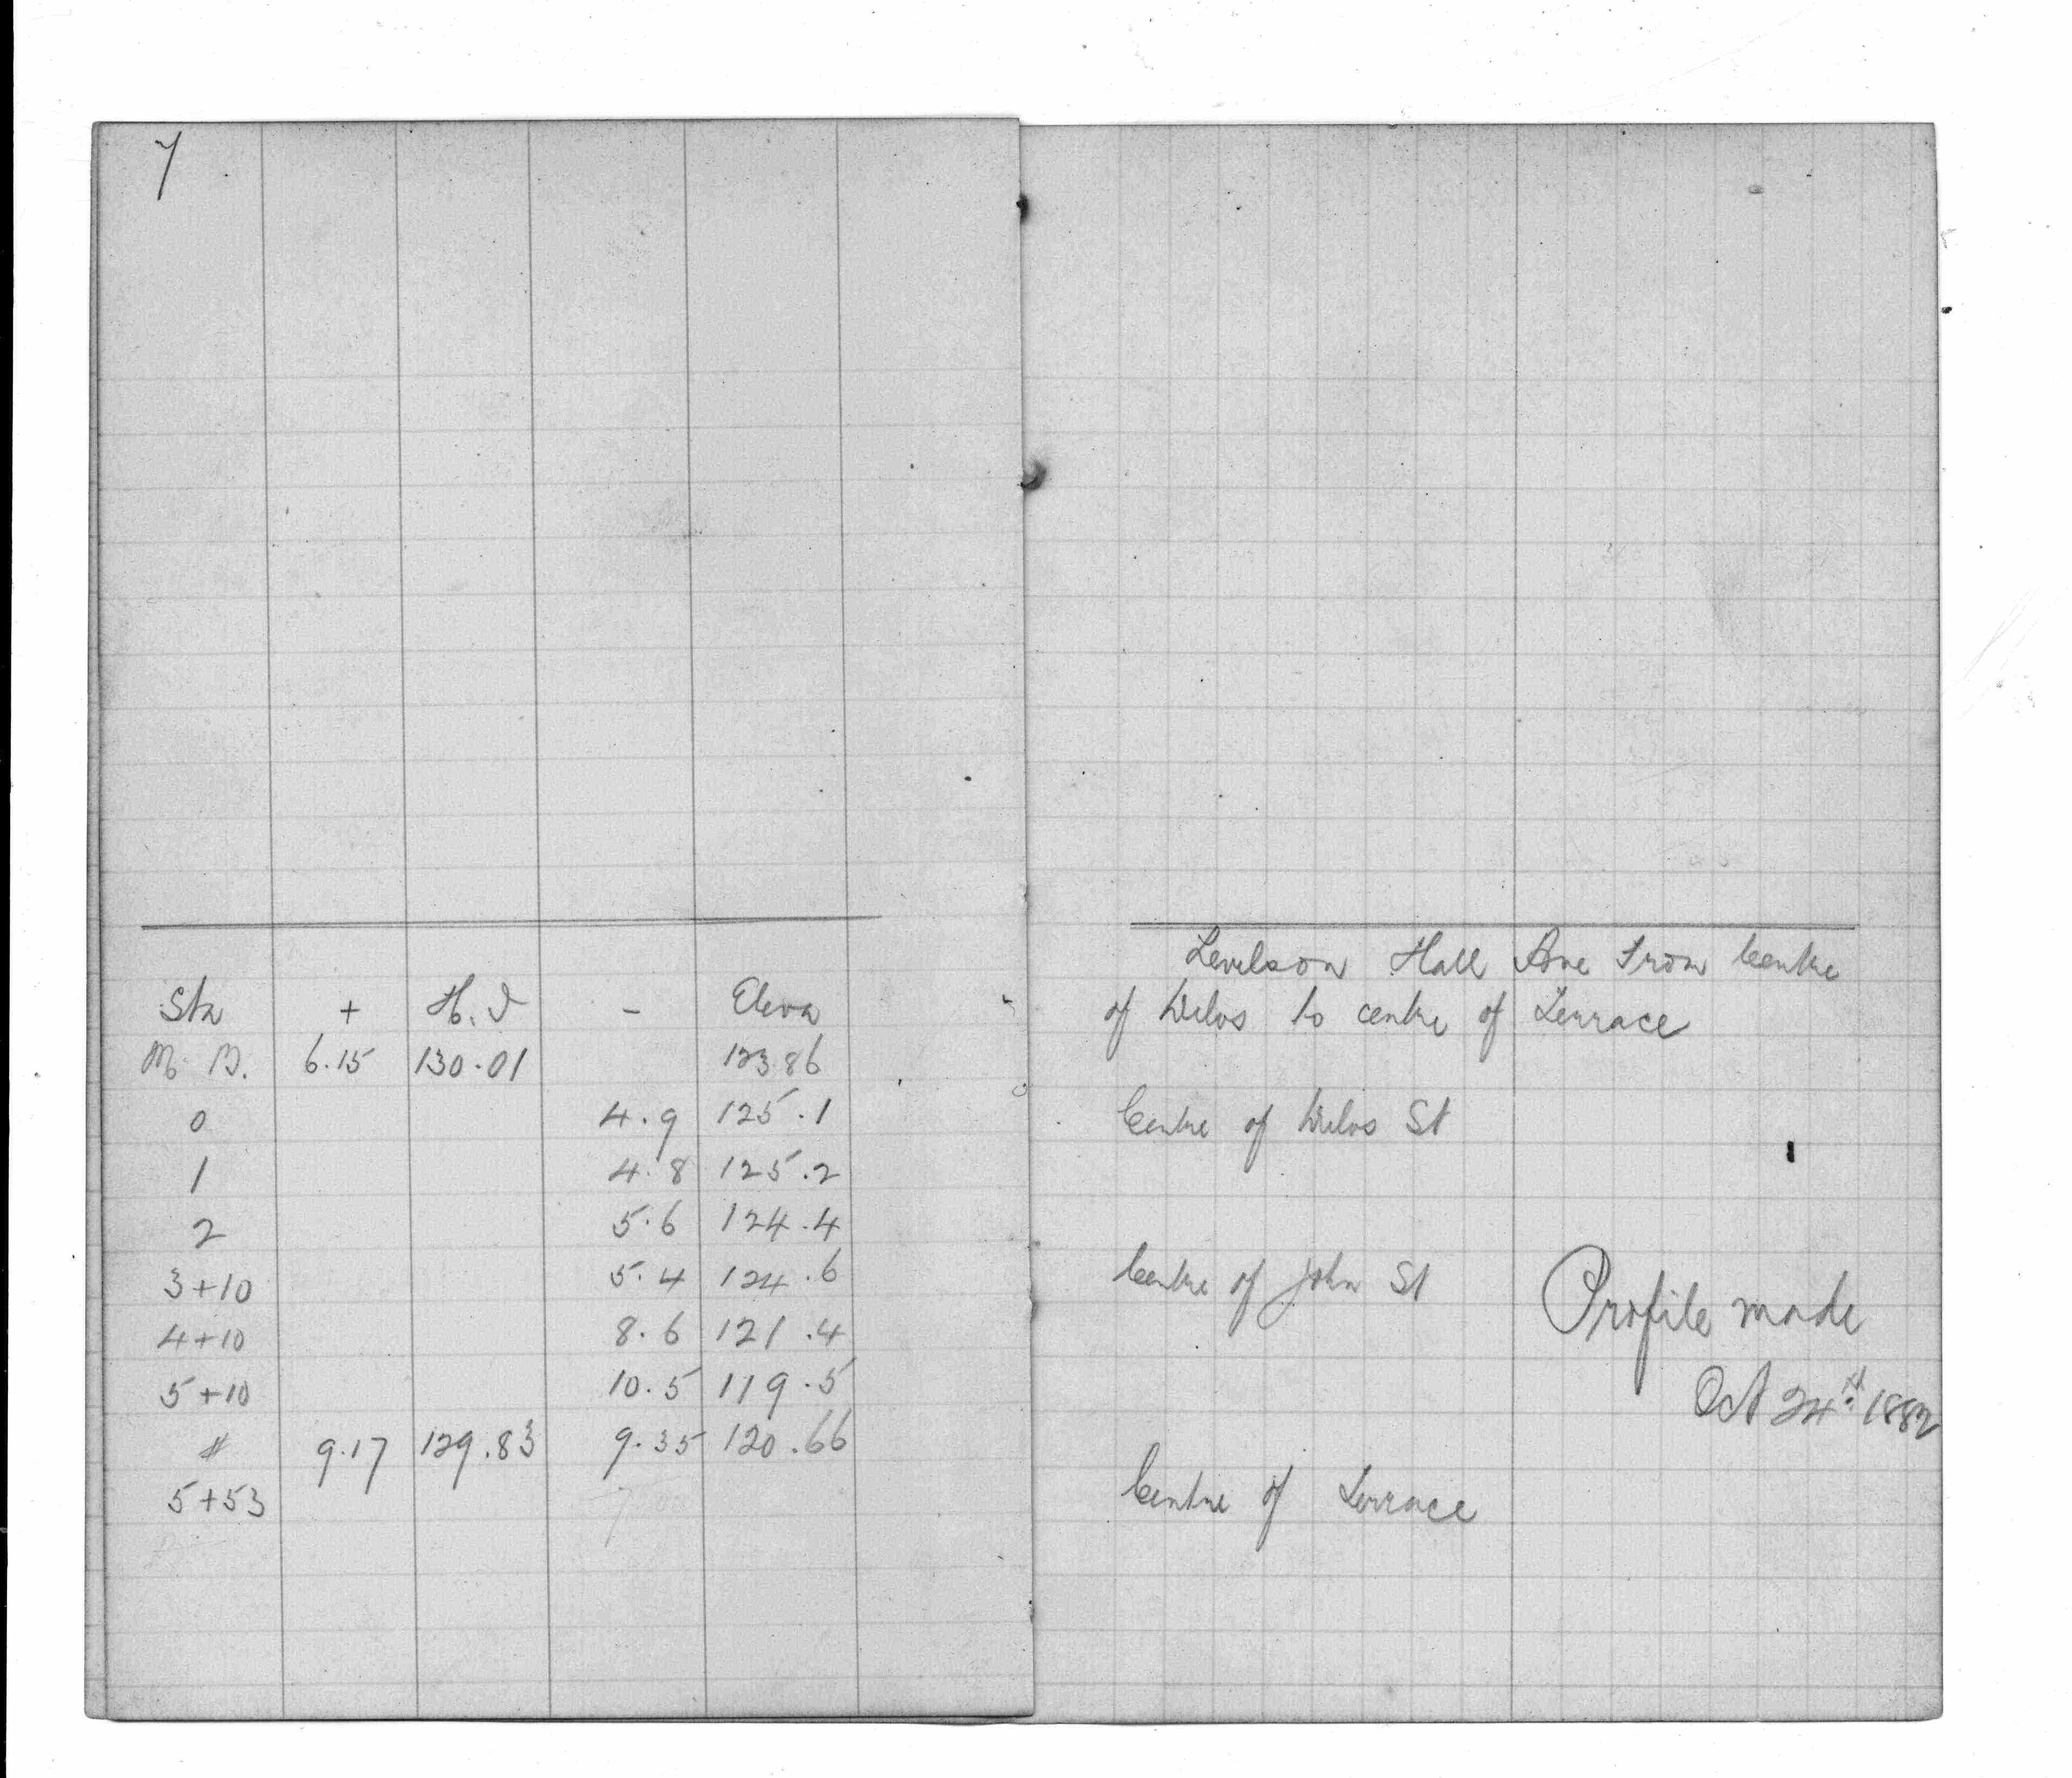 7
Levels on Hall Ave From Centre
of to centre of Terrace
Sta + H.I - Eleva
6.15 130.01 123.86
0 4.9 125.1 Centre of St
1 4.8 125.2
2 5.6 124.4
3+10 5.4 124.6 Centre of John St
4+10 8.6 121.4 Profile made
5+10 10.5 119.5 Oct 24th 1882
# 9.17 129.83 9.35 120.66
5+53 Centre of Terrace